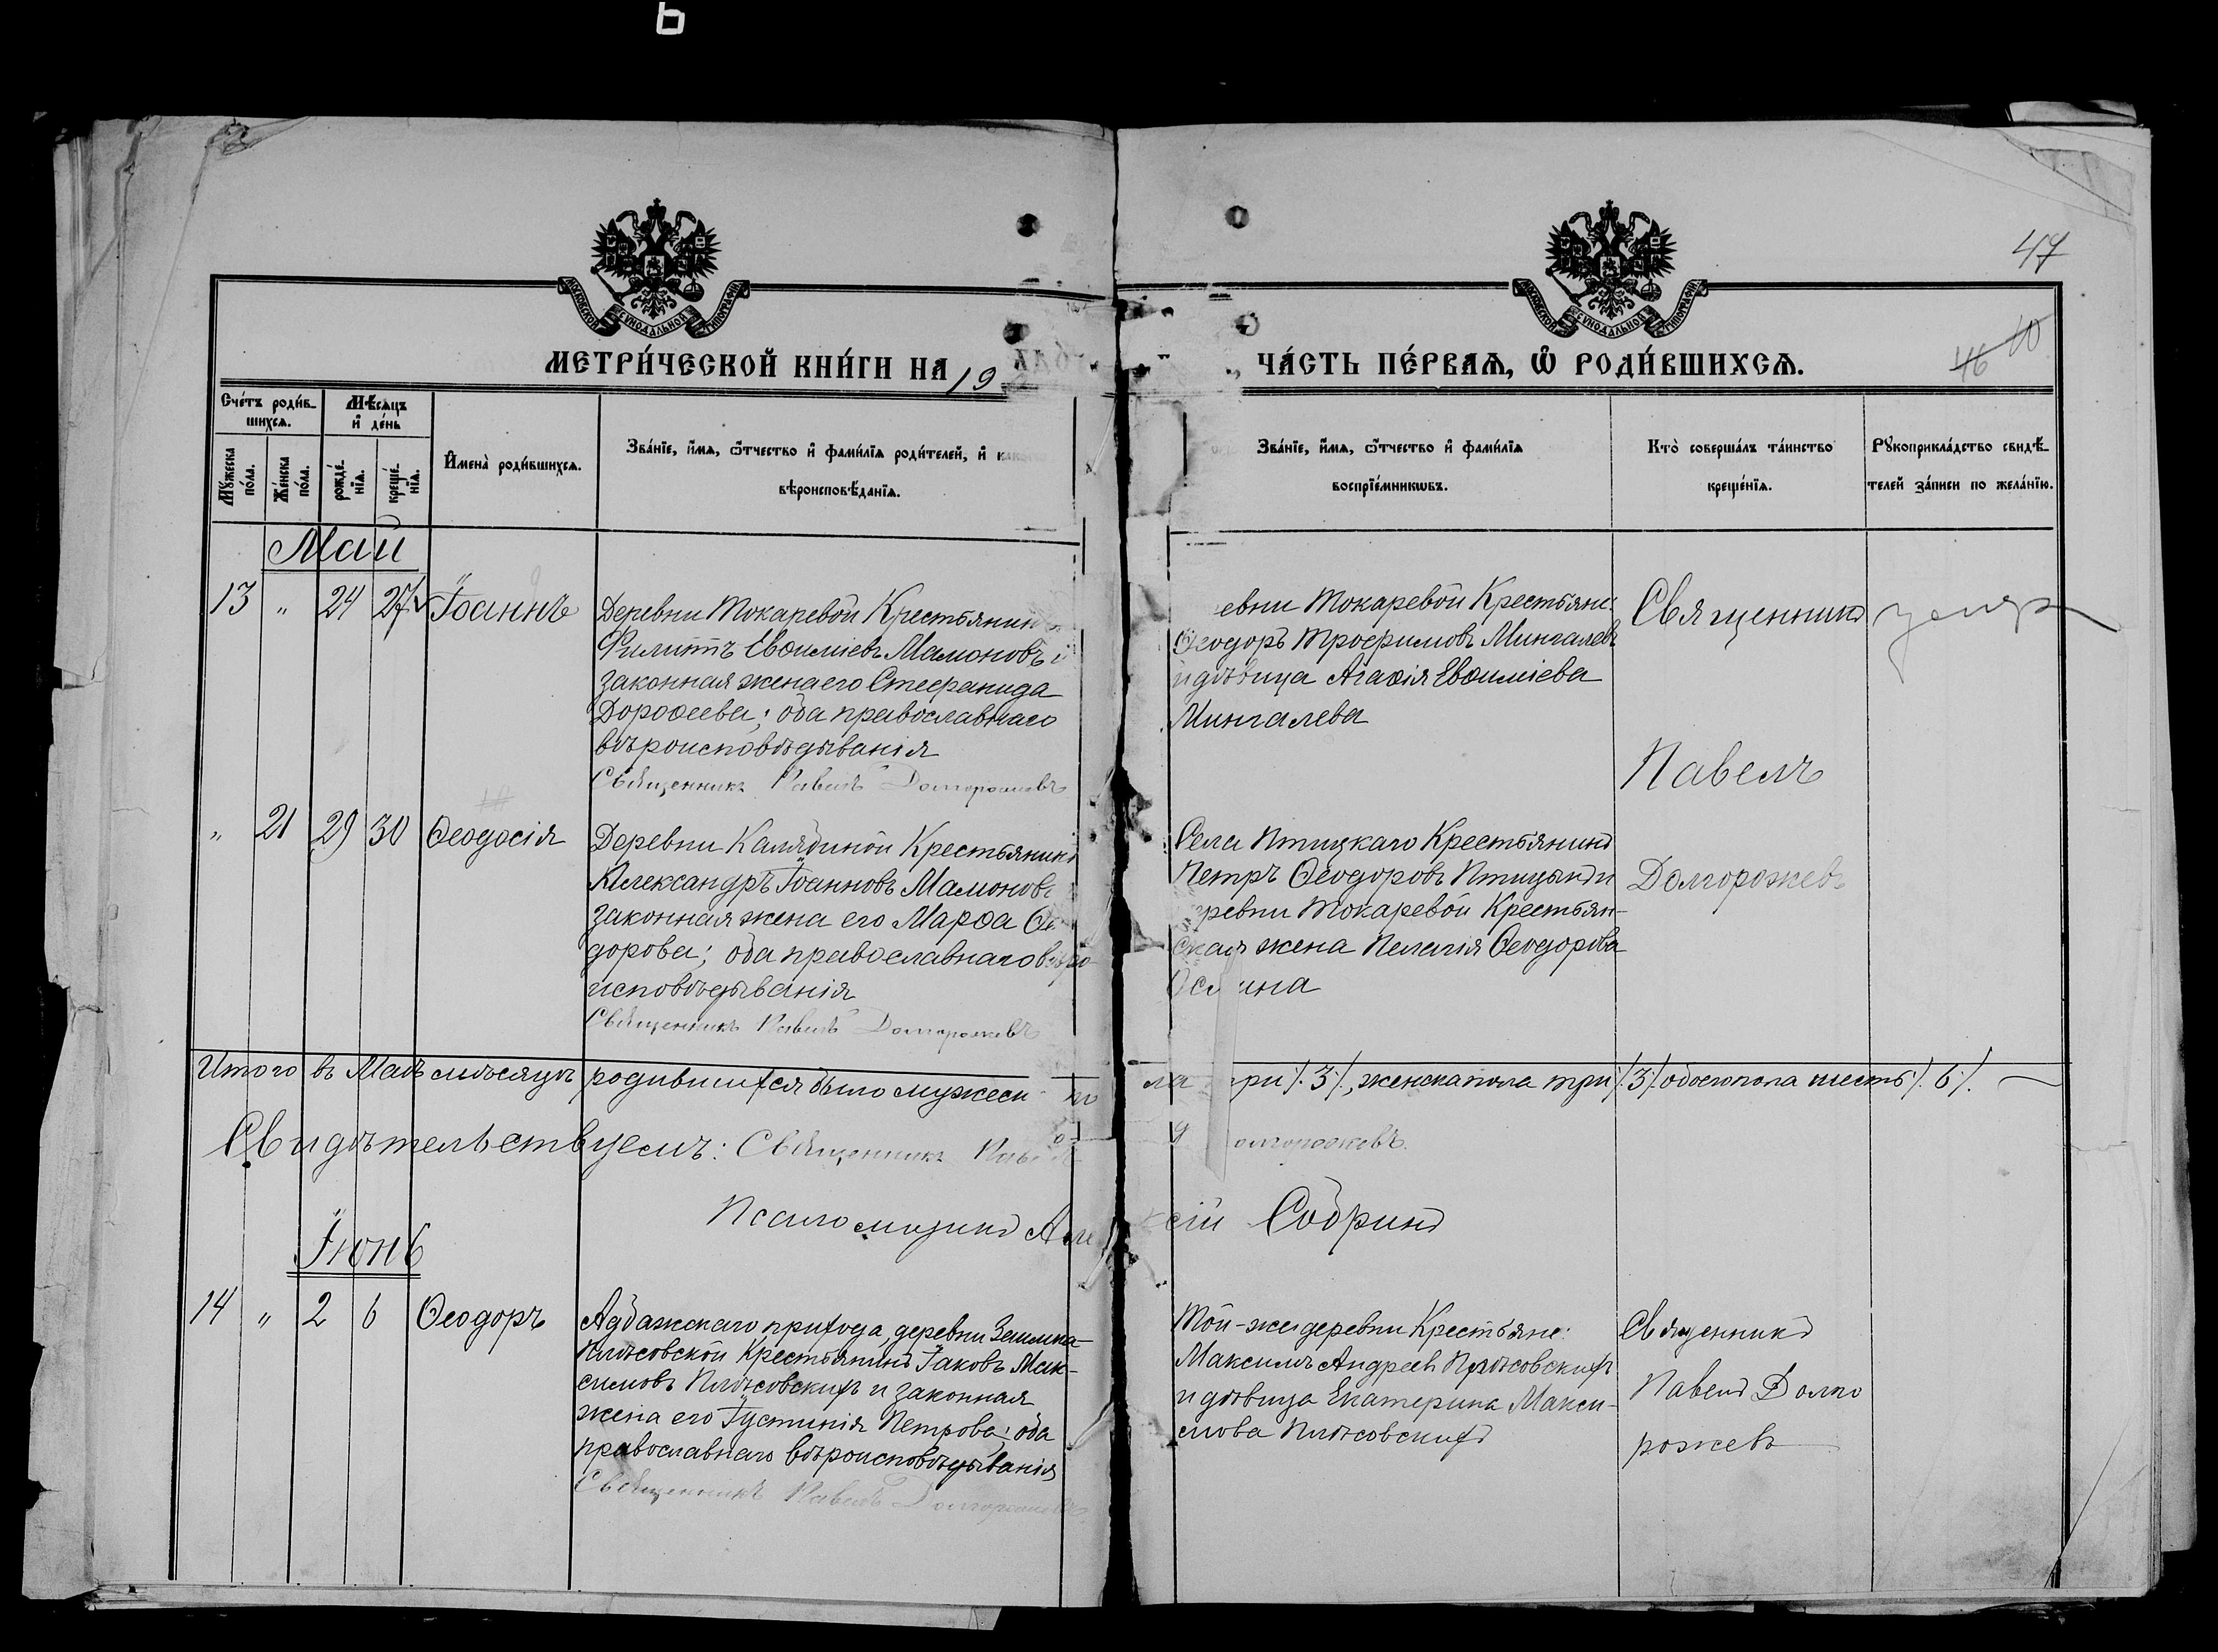 47
МОСКОВСКОЙ СѴНОДАЛЬНОЙ ТИПОГРАФІИ
МОСКОВСКОЙ СѴНОДАЛЬНОЙ ТИПОГРАФІИ
46 40
МЕТРИ́ЧЕСКОЙ КНИ́ГИ НА 19
ЧА́СТЬ ПЕ́РВАѦ, Ѡ҆ РОДИ́ВШИХСѦ.
Сче́тъ роди́в-
шихсѧ.
Мꙋжеска по́ла.
Же́нска по́ла.
Мѣ́сѧцъ
и҆ де́нь
рожде́нїѧ.
креще́нїѧ.
И҆мена̀ роди́вшихсѧ.
Зва́нїе, и҆́мѧ, ѻ҆́тчество и҆ фами́лїѧ роди́телей, и҆
вѣроисповѣ́данїѧ.
Зва́нїе, и҆́мѧ, ѻ҆́тчество и҆ фами́лїѧ
воспрїе́мникѡвъ.
Кто̀ соверша́лъ та́инство
креще́нїѧ.
Рꙋкоприкла́дство свидѣ́-
телей за́писи по жела́нїю.
Май
13 " 24 27 Іоаннъ
Деревни Токаревой Крестьянинъ
Филиппъ Евѳиміевъ Мамоновъ и
законная жена его Стефанида
Дороѳеева; оба православнаго
вѣроисповѣдыванія
Священникъ Павелъ Долгорожевъ
евни Токаревой Крестьяне:
Ѳеодоръ Трофимовъ Мингалевъ
и дѣвица Агаѳія Евѳиміева
Мингалева
Священникъ
Павелъ
Долгорожевъ
" 21 29 30 Ѳеодосія
Деревни Калядиной Крестьянинъ
Александръ Іоанновъ Мамоновъ
законная жена его Марѳа Ѳе
дорова; оба православнаго вѣро-
исповѣдыванія
Священникъ Павелъ Долгорожевъ
Села Птицкаго Крестьянинъ
Петръ Ѳеодоровъ Птицынъ и
деревни Токаревой Крестьян-
ская жена Пелагія Ѳеодорова
Итого въ Маѣ мѣсяцѣ родившихся было мужеск по
ла три /. 3 /., женска пола три /. 3 /. обоего пола шесть /. 6 /.
Свидѣтельствуемъ: Священникъ Павелъ
олгорожевъ.
Псаломщикъ Алексій Собринъ
Іюнь
14 " 2 6 Ѳеодоръ
Адбажскаго прихода, деревни
Плѣсовской Крестьянинъ Іаковъ Мак-
симовъ Плѣсовскихъ и законная
жена его Іустинія Петрова; оба
православнаго вѣроисповѣдыванія
Священникъ Павелъ Долгорожевъ
Той-же деревни Крестьяне:
Максимъ Андреевъ Плѣсовскихъ
и дѣвица Екатерина Макси-
мова Плѣсовскихъ
Священникъ
Павелъ Долго
рожевъ